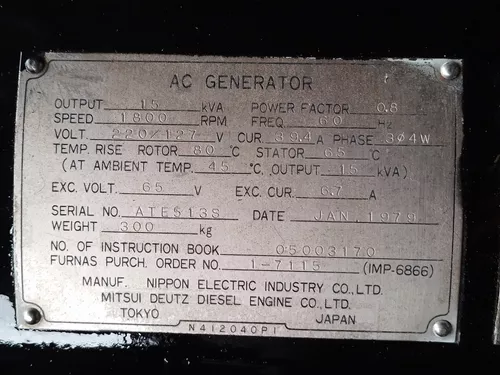 AC GENERATOR
OUTPUT 15 kVA POWER FACTOR 0.8
SPEED 1800 RPM FREQ. 60 Hz
VOLT. 220/127 V CUR. 39.4 A PHASE 3Φ4W
TEMP. RISE ROTOR 80 °C STATOR 65 °C
(AT AMBIENT TEMP. 45 °C, OUTPUT 15 kVA)
EXC. VOLT. 65 V EXC. CUR. 6.7 A
SERIAL NO. ATE513S DATE JAN. 1979
WEIGHT 300 kg
NO. OF INSTRUCTION BOOK 05003170
FURNAS PURCH. ORDER NO. 1-7115 (IMP-6866)
MANUF. NIPPON ELECTRIC INDUSTRY CO., LTD.
MITSUI DEUTZ DIESEL ENGINE CO., LTD.
TOKYO JAPAN
N412040P1